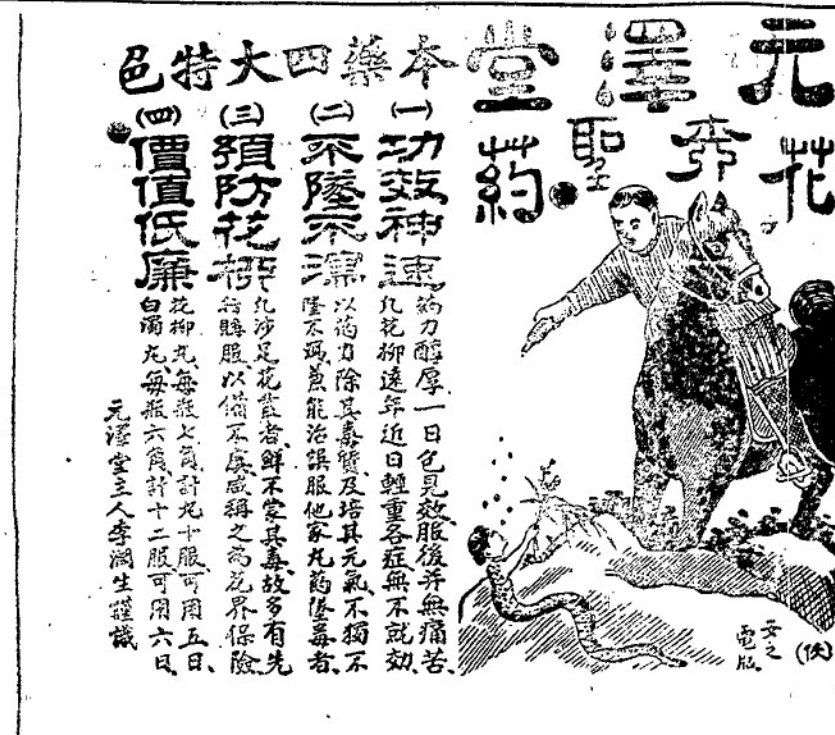 元澤堂
花柳聖葯
本藥四大特色
(一)
功效神速
葯力醇厚、一日包見效、服後并無痛苦、
凡花柳遠年近日輕重各症無不就効、
(二)
不墜不瀉
以葯力除其毒質、及培其元氣、不獨不
墜不瀉、兼能治誤服他家丸葯墜毒者、
(三)
預防花柳
凡涉足花叢者、鮮不受其毒、故多有先
行購服、以備不虞、咸稱之為花界保險、
(四)
價值低廉
花柳丸、每瓶七角、計九十服可用五日、
白濁丸、每瓶六角、計十二服可用六日、
元澤堂主人李潤生謹識
電版